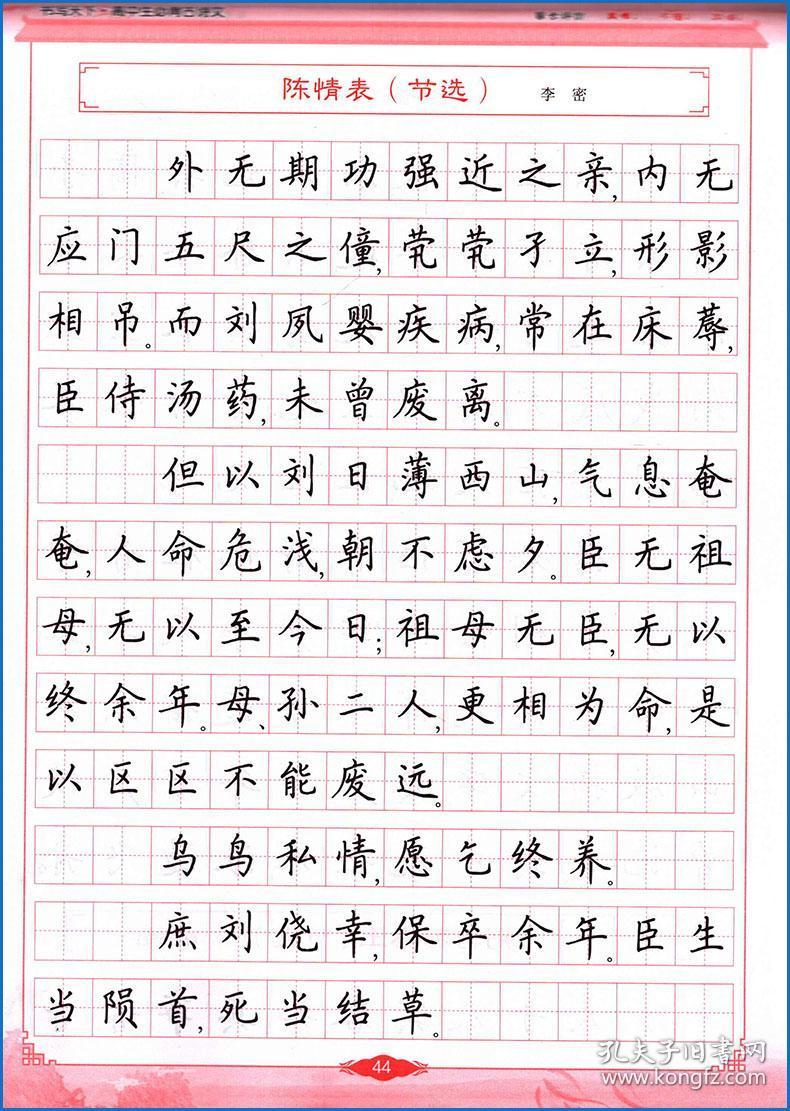 陈情表（节选） 李密
外无期功强近之亲,内无
应门五尺之僮,茕茕孑立,形影
相吊。而刘夙婴疾病,常在床蓐,
臣侍汤药,未曾废离。
但以刘日薄西山,气息奄
奄,人命危浅,朝不虑夕。臣无祖
母,无以至今日;祖母无臣,无以
终余年。母、孙二人,更相为命,是
以区区不能废远。
乌鸟私情,愿乞终养。
庶刘侥幸,保卒余年。臣生
当陨首,死当结草。
44
孔夫子旧书网
www.kongfz.com